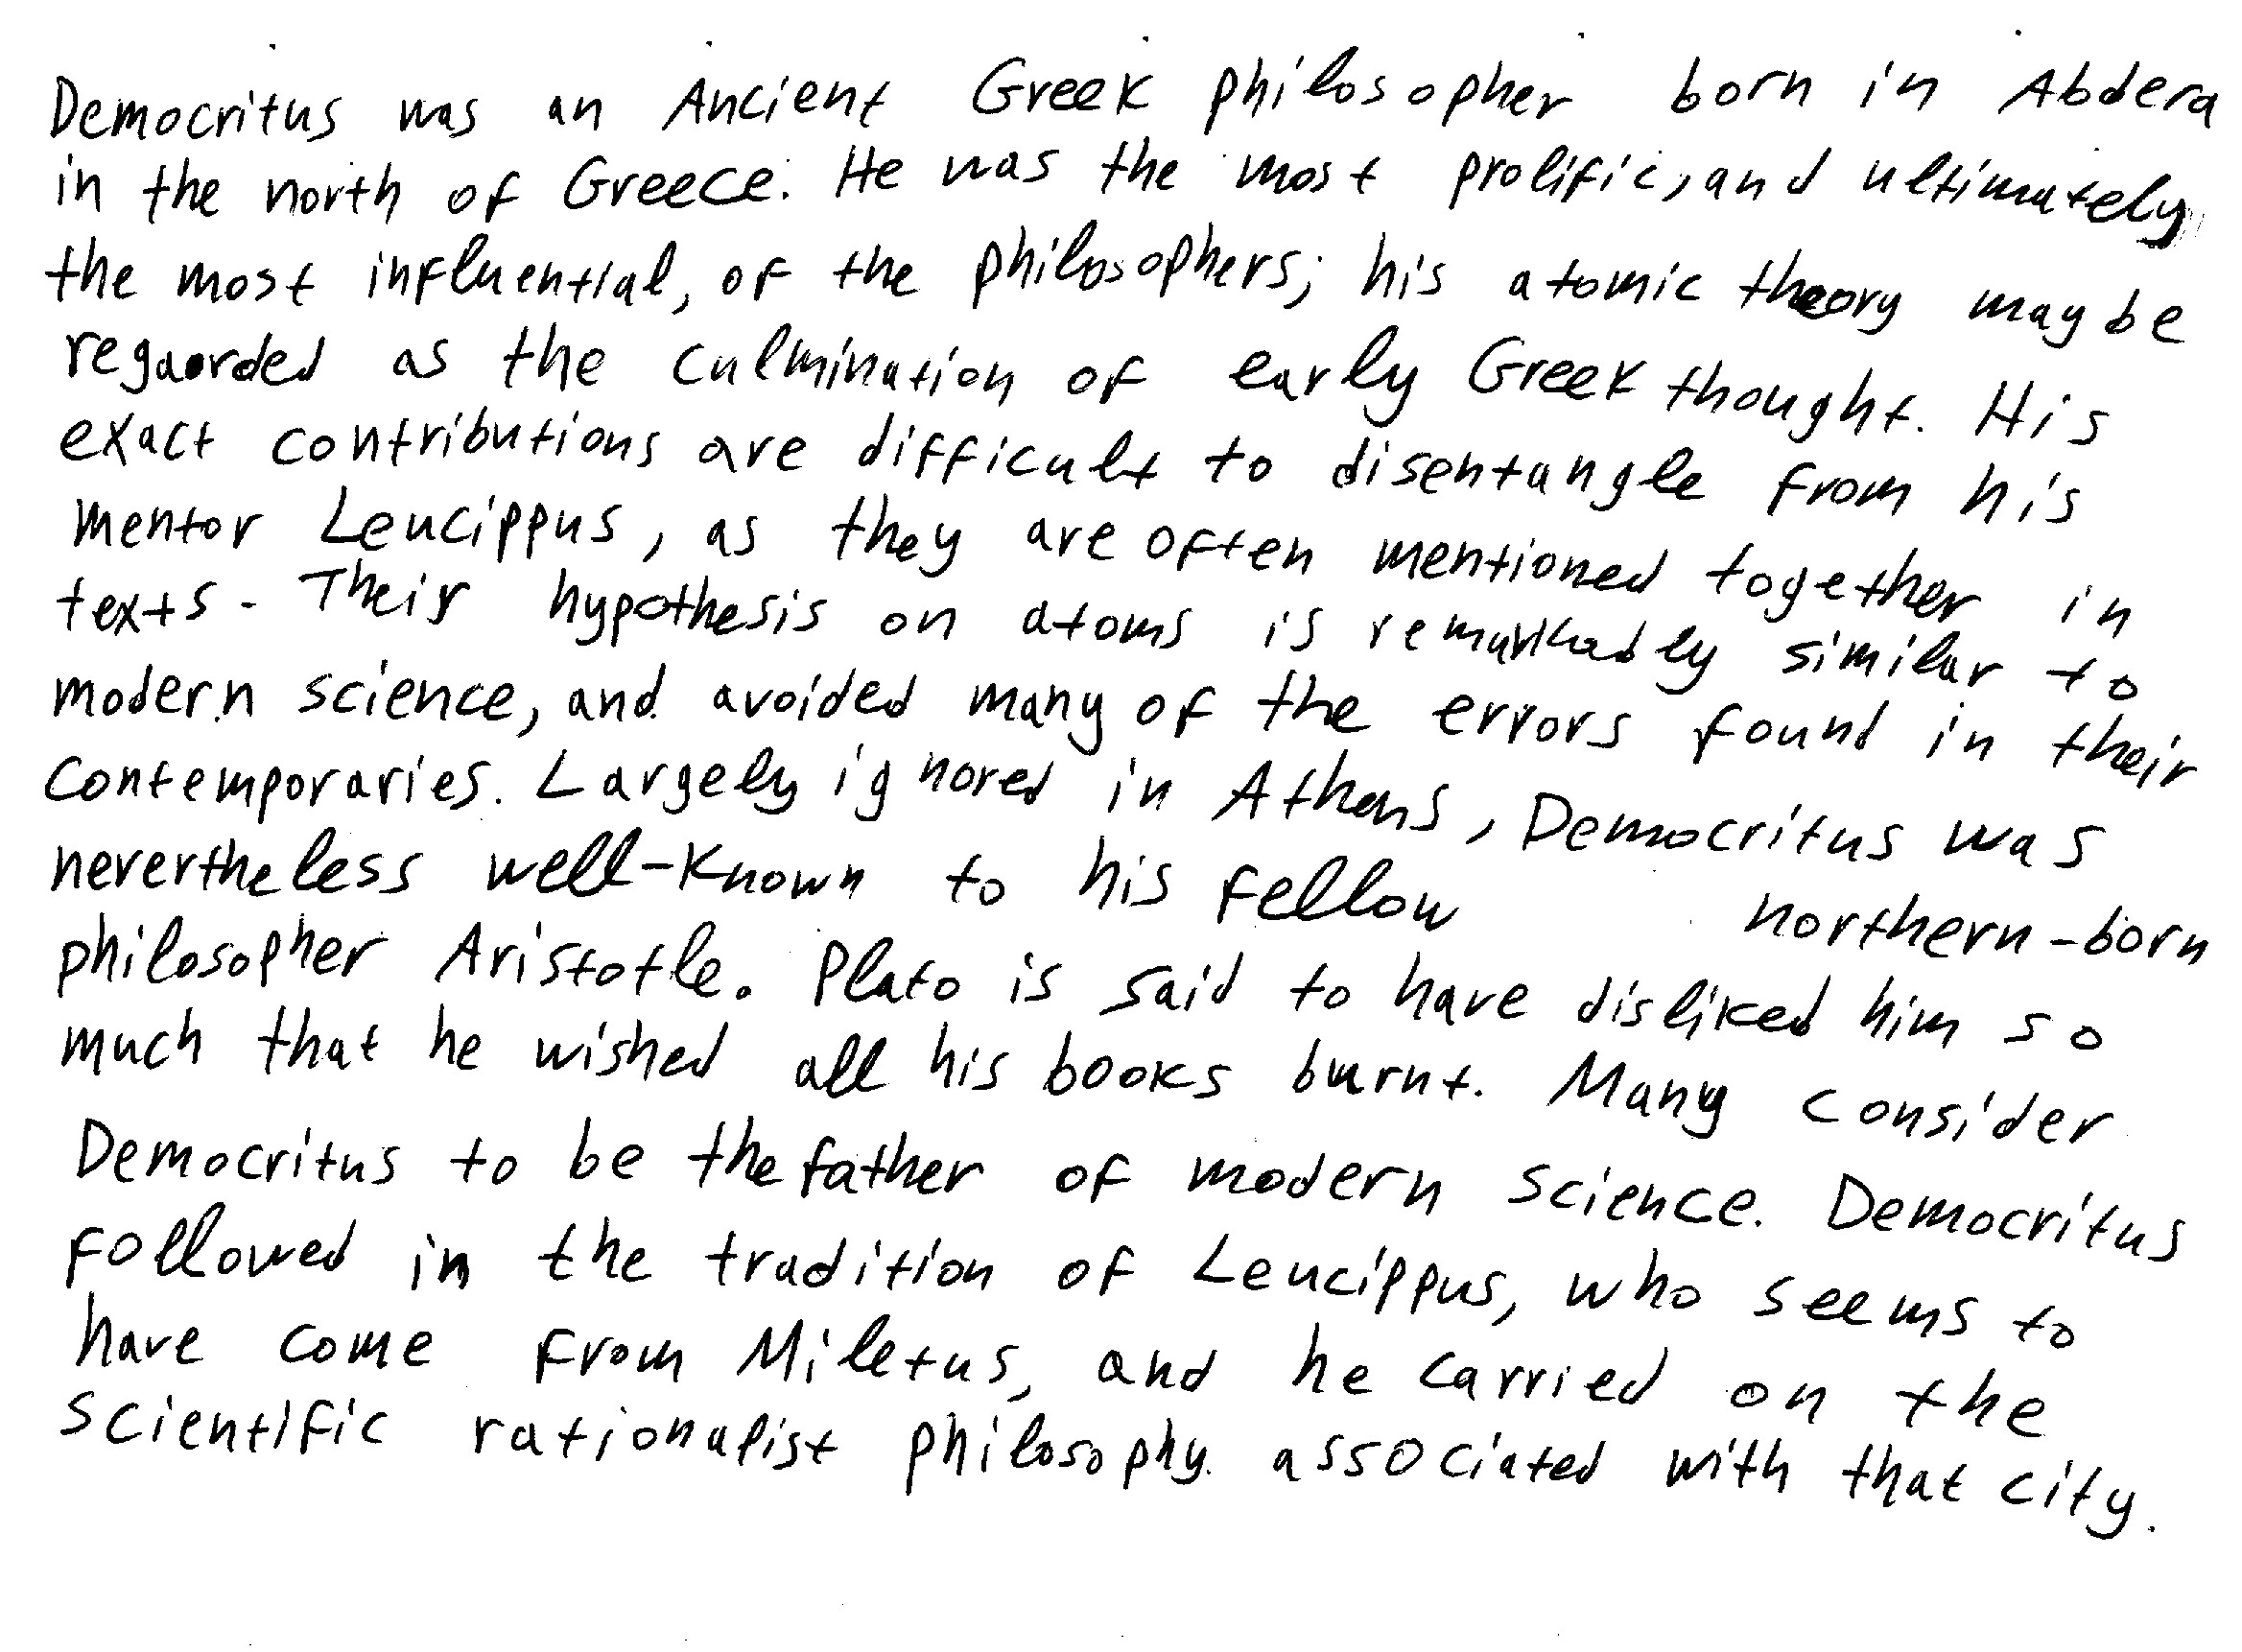 Democritus was an Ancient Greek philosopher born in Abdera
in the north of Greece. He was the most prolific, and ultimately
the most influential, of the philosophers; his atomic theory may be
regaorded as the culmination of early Greek thought. His
exact contributions are difficult to disentangle from his
mentor Leucippus, as they are often mentioned together in
texts. Their hypothesis on atoms is remarkably similar to
modern science, and avoided many of the errors found in their
contemporaries. Largely ignored in Athens, Democritus was
nevertheless well-known to his fellow northern-born
philosopher Aristotle. Plato is said to have disliked him so
much that he wished all his books burnt. Many consider
Democritus to be the father of modern science. Democritus
followed in the tradition of Leucippus, who seems to
have come from Miletus, and he carried on the
scientific rationalist philosophy associated with that city.